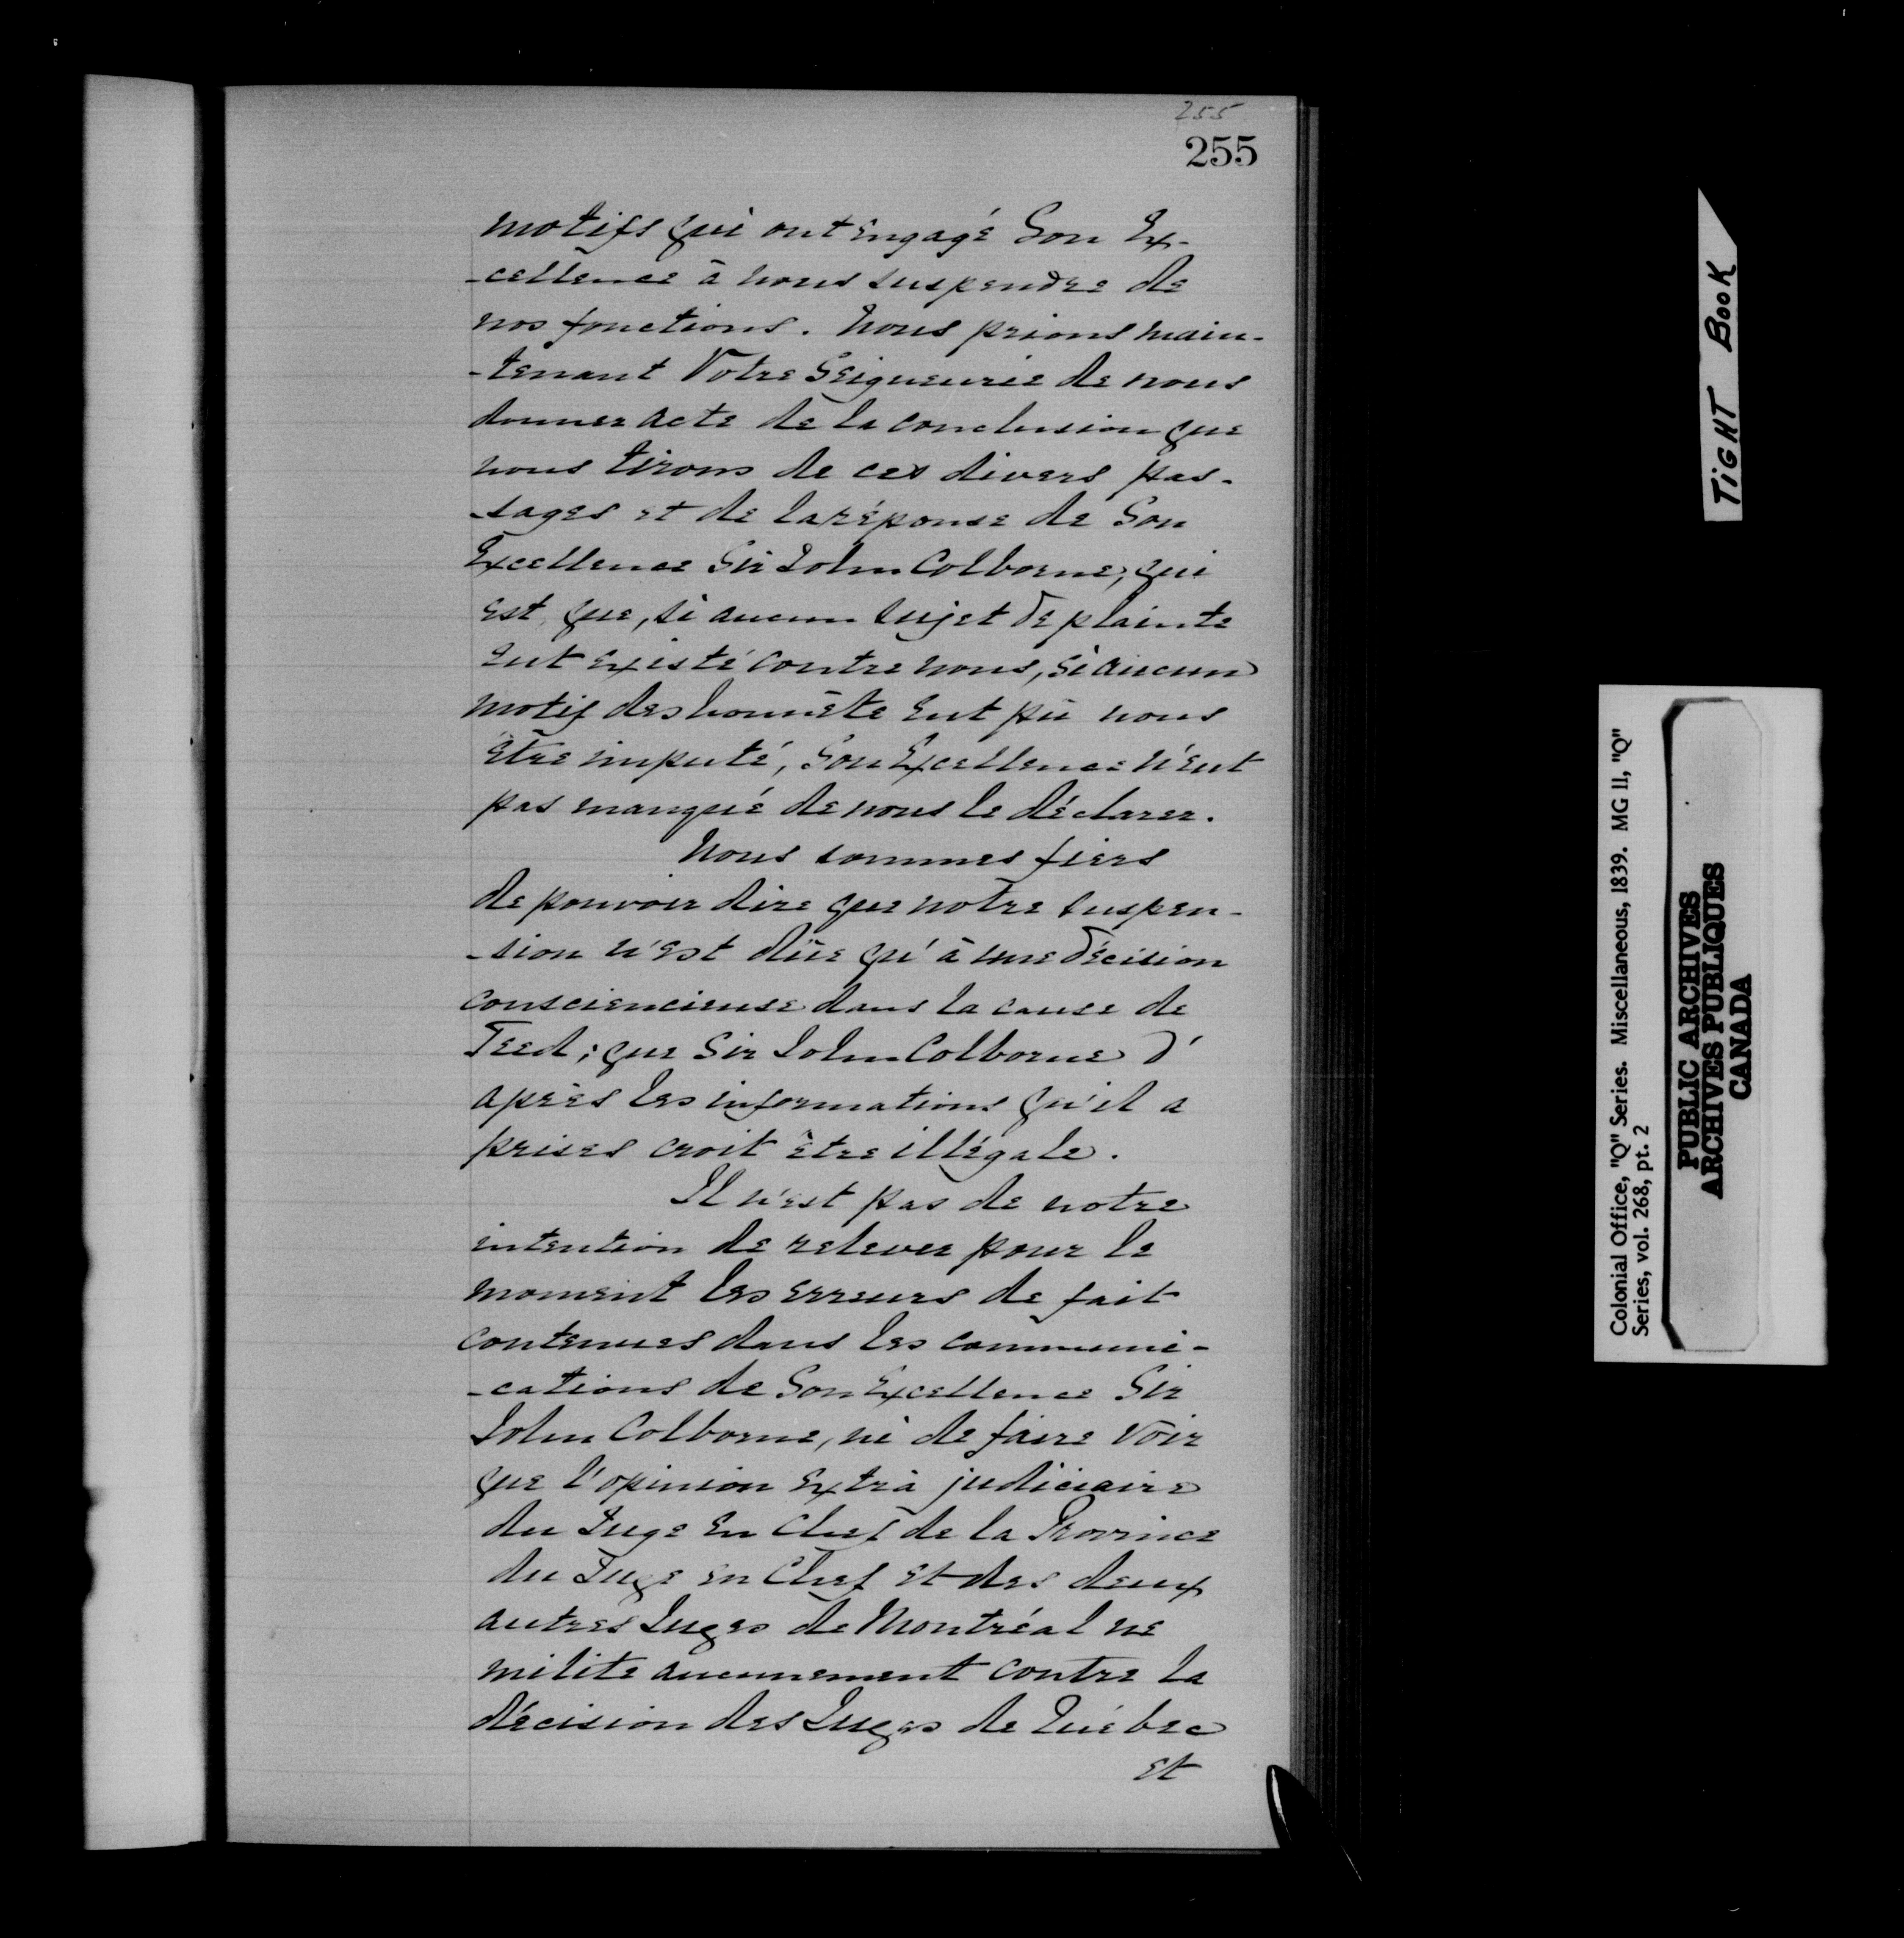 255
255
motifs qui ont engagé Son Ex-
-cellence à nous suspendre de
nos fonctions. Nous prions main-
-tenant Votre Seigneurie de nous
donner acte de la conclusion que
nous tirons de ces divers pas-
-sages et de la réponse de Son
Excellence Sir John Colborne, qui
est que, si aucun sujet de plainte
eut existé contre nous, si aucun
motif deshonnête eut pû nous
être imputé, Son Excellence n'eut
pas manqué de nous le déclarer.
Nous sommes fiers
de pouvoir dire que notre suspen-
-sion n'est dûe qu'à une décision
consciencieuse dans la cause de
Teed; que Sir John Colborne d'
après les informations qu'il a
prises croit être illégale.
Il n'est pas de notre
intention de relever pour le
moment les erreurs de fait
contenues dans les communi-
-cations de Son Excellence Sir
John Colborne, ni de faire voir
que l'opinion extrà judiciaire
du Juge en Chef de la Province
du Juge en Chef et des deux
autres Juges de Montréal ne
milite aucunement contre la
décision des Juges de Québec
et
TIGHT BOOK
Colonial Office, "Q" Series. Miscellaneous, 1839. MG 11, "Q"
Series, vol. 268, pt. 2
PUBLIC ARCHIVES
ARCHIVES PUBLIQUES
CANADA